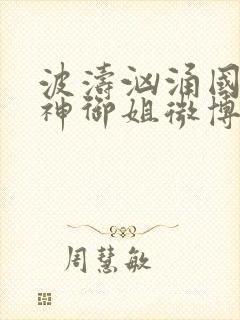 波濤洶涌國
神御姐微博
周慧敏